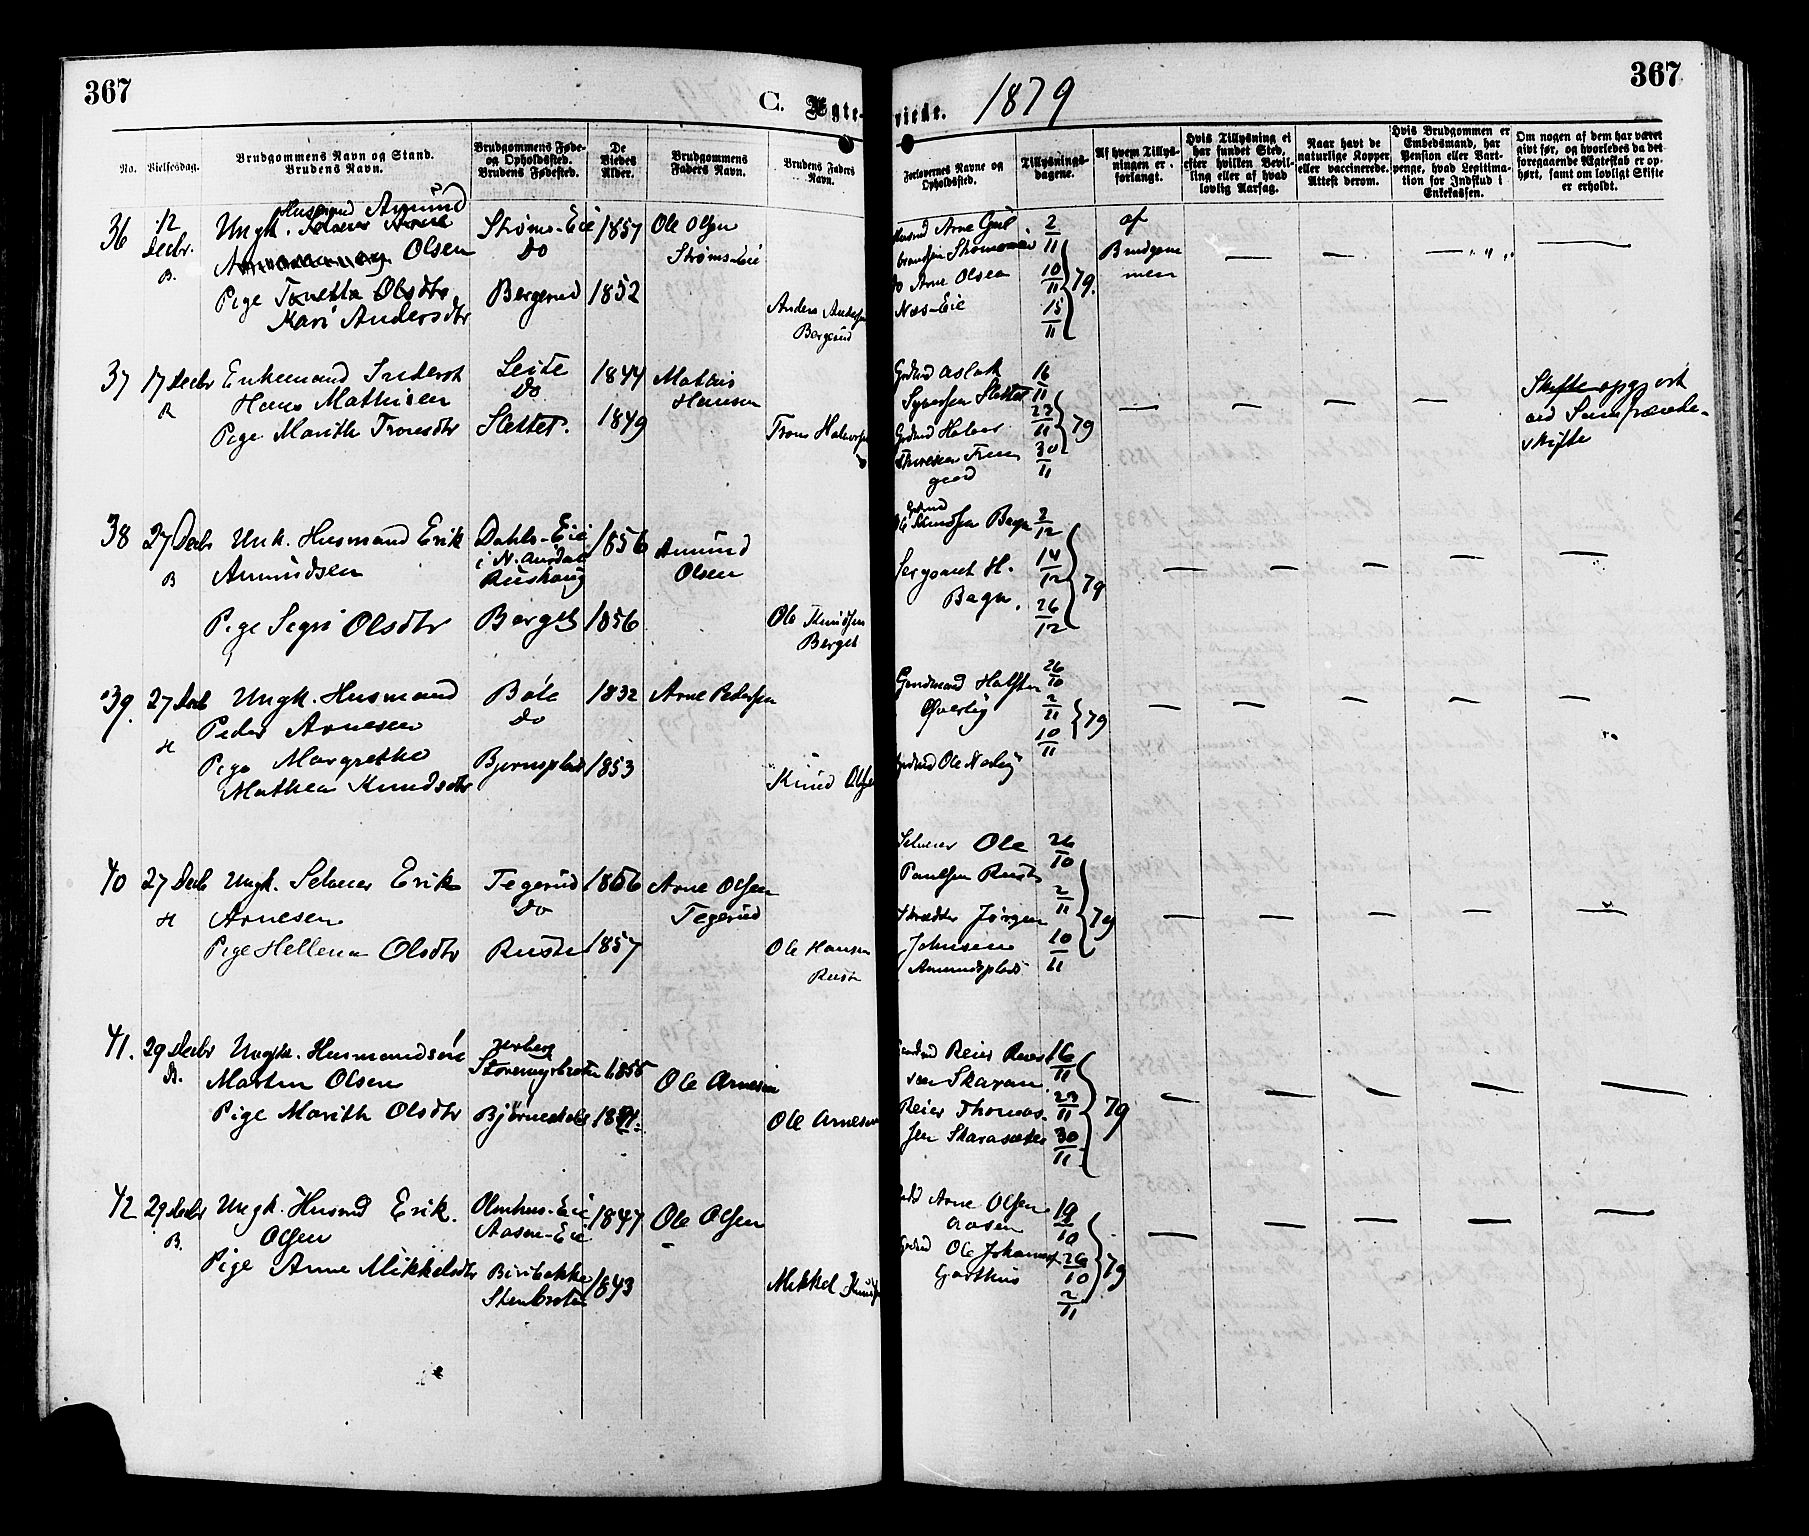 367
367
C. Ægte-viede. 1879
No.
Vielsesdag.
Brudgommens Navn og Stand.
Brudens Navn.
Brudgommens Føde-
og Opholdssted.
Brudens Fødested.
De
Viedes
Alder.
Brudgommens
Faders Navn.
Brudens Faders
Navn.
Forlovernes Navne og
Opholdssted.
Tillysnings-
dagene.
Af hvem Tillys-
ningen er
forlangt.
Hvis Tillysning ei
har fundet Sted,
efter hvilken Bevil-
ling eller af hvad
lovlig Aarsag.
Naar havt de
naturlige Kopper
eller vaccinerede.
Attest derom.
Hvis Brudgommen er
Embedsmand, har
Pension eller Vart-
penge, hvad Legitima-
tion for Indskud i
Enkekassen.
Om nogen af dem har været
givt før, og hvorledes da det
foregaaende Ægteskab er op-
hørt, samt om lovligt Skifte
er erholdt.
36
12
Decbr.
B.
Husmand Amund
Ungk. Selveier Arne
Olsen
Pige Tonetta Olsdtr.
Kari Andersdtr
Strøms-Eie
Do
Bergerud
1857
1852
Ole Olsen
Strøms-Eie
Anders Anders
Bergerud
Arne Gul
brandsen
Do Arne Olsen
Næs-Eie
2/11
10/11
15/11
79.
af
Brudgom
men
37
17 Decbr
B
Enkemand Inderst
Hans Mathisen
Pige Marith Tronsdtr
Leite
Do
Slettet.
1844
1849
Mathis
Hansen
Tron Halvors
Grdmd Aslak
Syversen Slettet
Grdmd Halvor
16/11
23/11
30/11
79
Skifte opgjort
ved Samfrænde-
skifte
38
27 Decbr
B
Unk. Husmand Erik
Amundsen
Pige Sigri Olsdtr
Dahls-Eie
i N. Aurdal
Rushaug
Berget
1856
1856
Amund
Olsen
Ole Knudsen
Berget
Knudsen Bagn
Sergeant H.
Bagn.
2/12
14/12
26/12
79
39.
27 Decb
H
Ungk. Husmand
Peder Arnesen
Pige Margrethe
Mathea Knudsdtr
Bøle
Do
Bjørnsplads
1832
1853
Arne Pedersen
Knud Olsen
Gaardmand Halsten
Øverby
Grdmd Ole Nordby
26/10
2/11
10/11
79
40
27 Decb
H
Ungk. Selveier Erik
Arnesen
Pige Hellena Olsdtr
Tegerud
Do
Ruste
1856
1857
Arne Olsen
Tegerud
Ole Hansen
Ruste
Selveier Ole
Paulsen Ruste
Skrædder Jørgen
Johnsen
Amundsplads
26/10
2/11
10/11
79
41.
29 Decbr
B.
Ungk. Husmandsøn
Martin Olsen
Pige Marith Olsdtr
1855
Ole Arnesen
Ole Arnesen
Reier Reier
sen Skaran.
Reier Thomas.
sen Skarasæter
16/11
23/11
30/11
79
42
29 Decbr
B.
Ungk. Husmd Erik
Olsen
Pige Anne Mikkelsdtr
Olmhus-Eie
Aasen-Eie
Biribakke
Stenbroten
1847
1843
Ole Olsen
Mikkel Knuds
Arne Olsen
Aasen
Grdmd Ole Johannes
Garthus
19/10
26/10
2/11
79